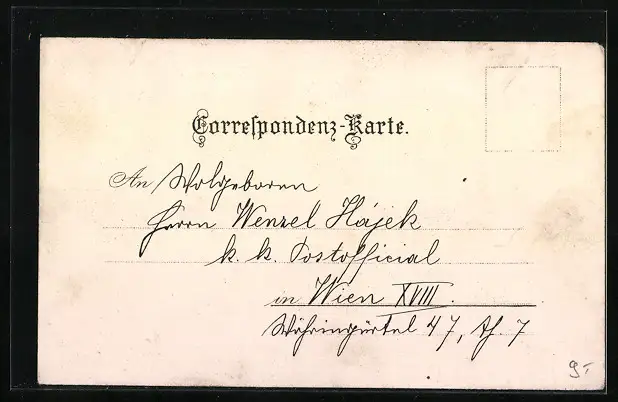 Correspondenz-Karte.
An Wolgeboren
Herrn Wenzel Hájek
k. k. Postofficial
in Wien XVIII.
Währingürtel 47, Th. 7
9.-